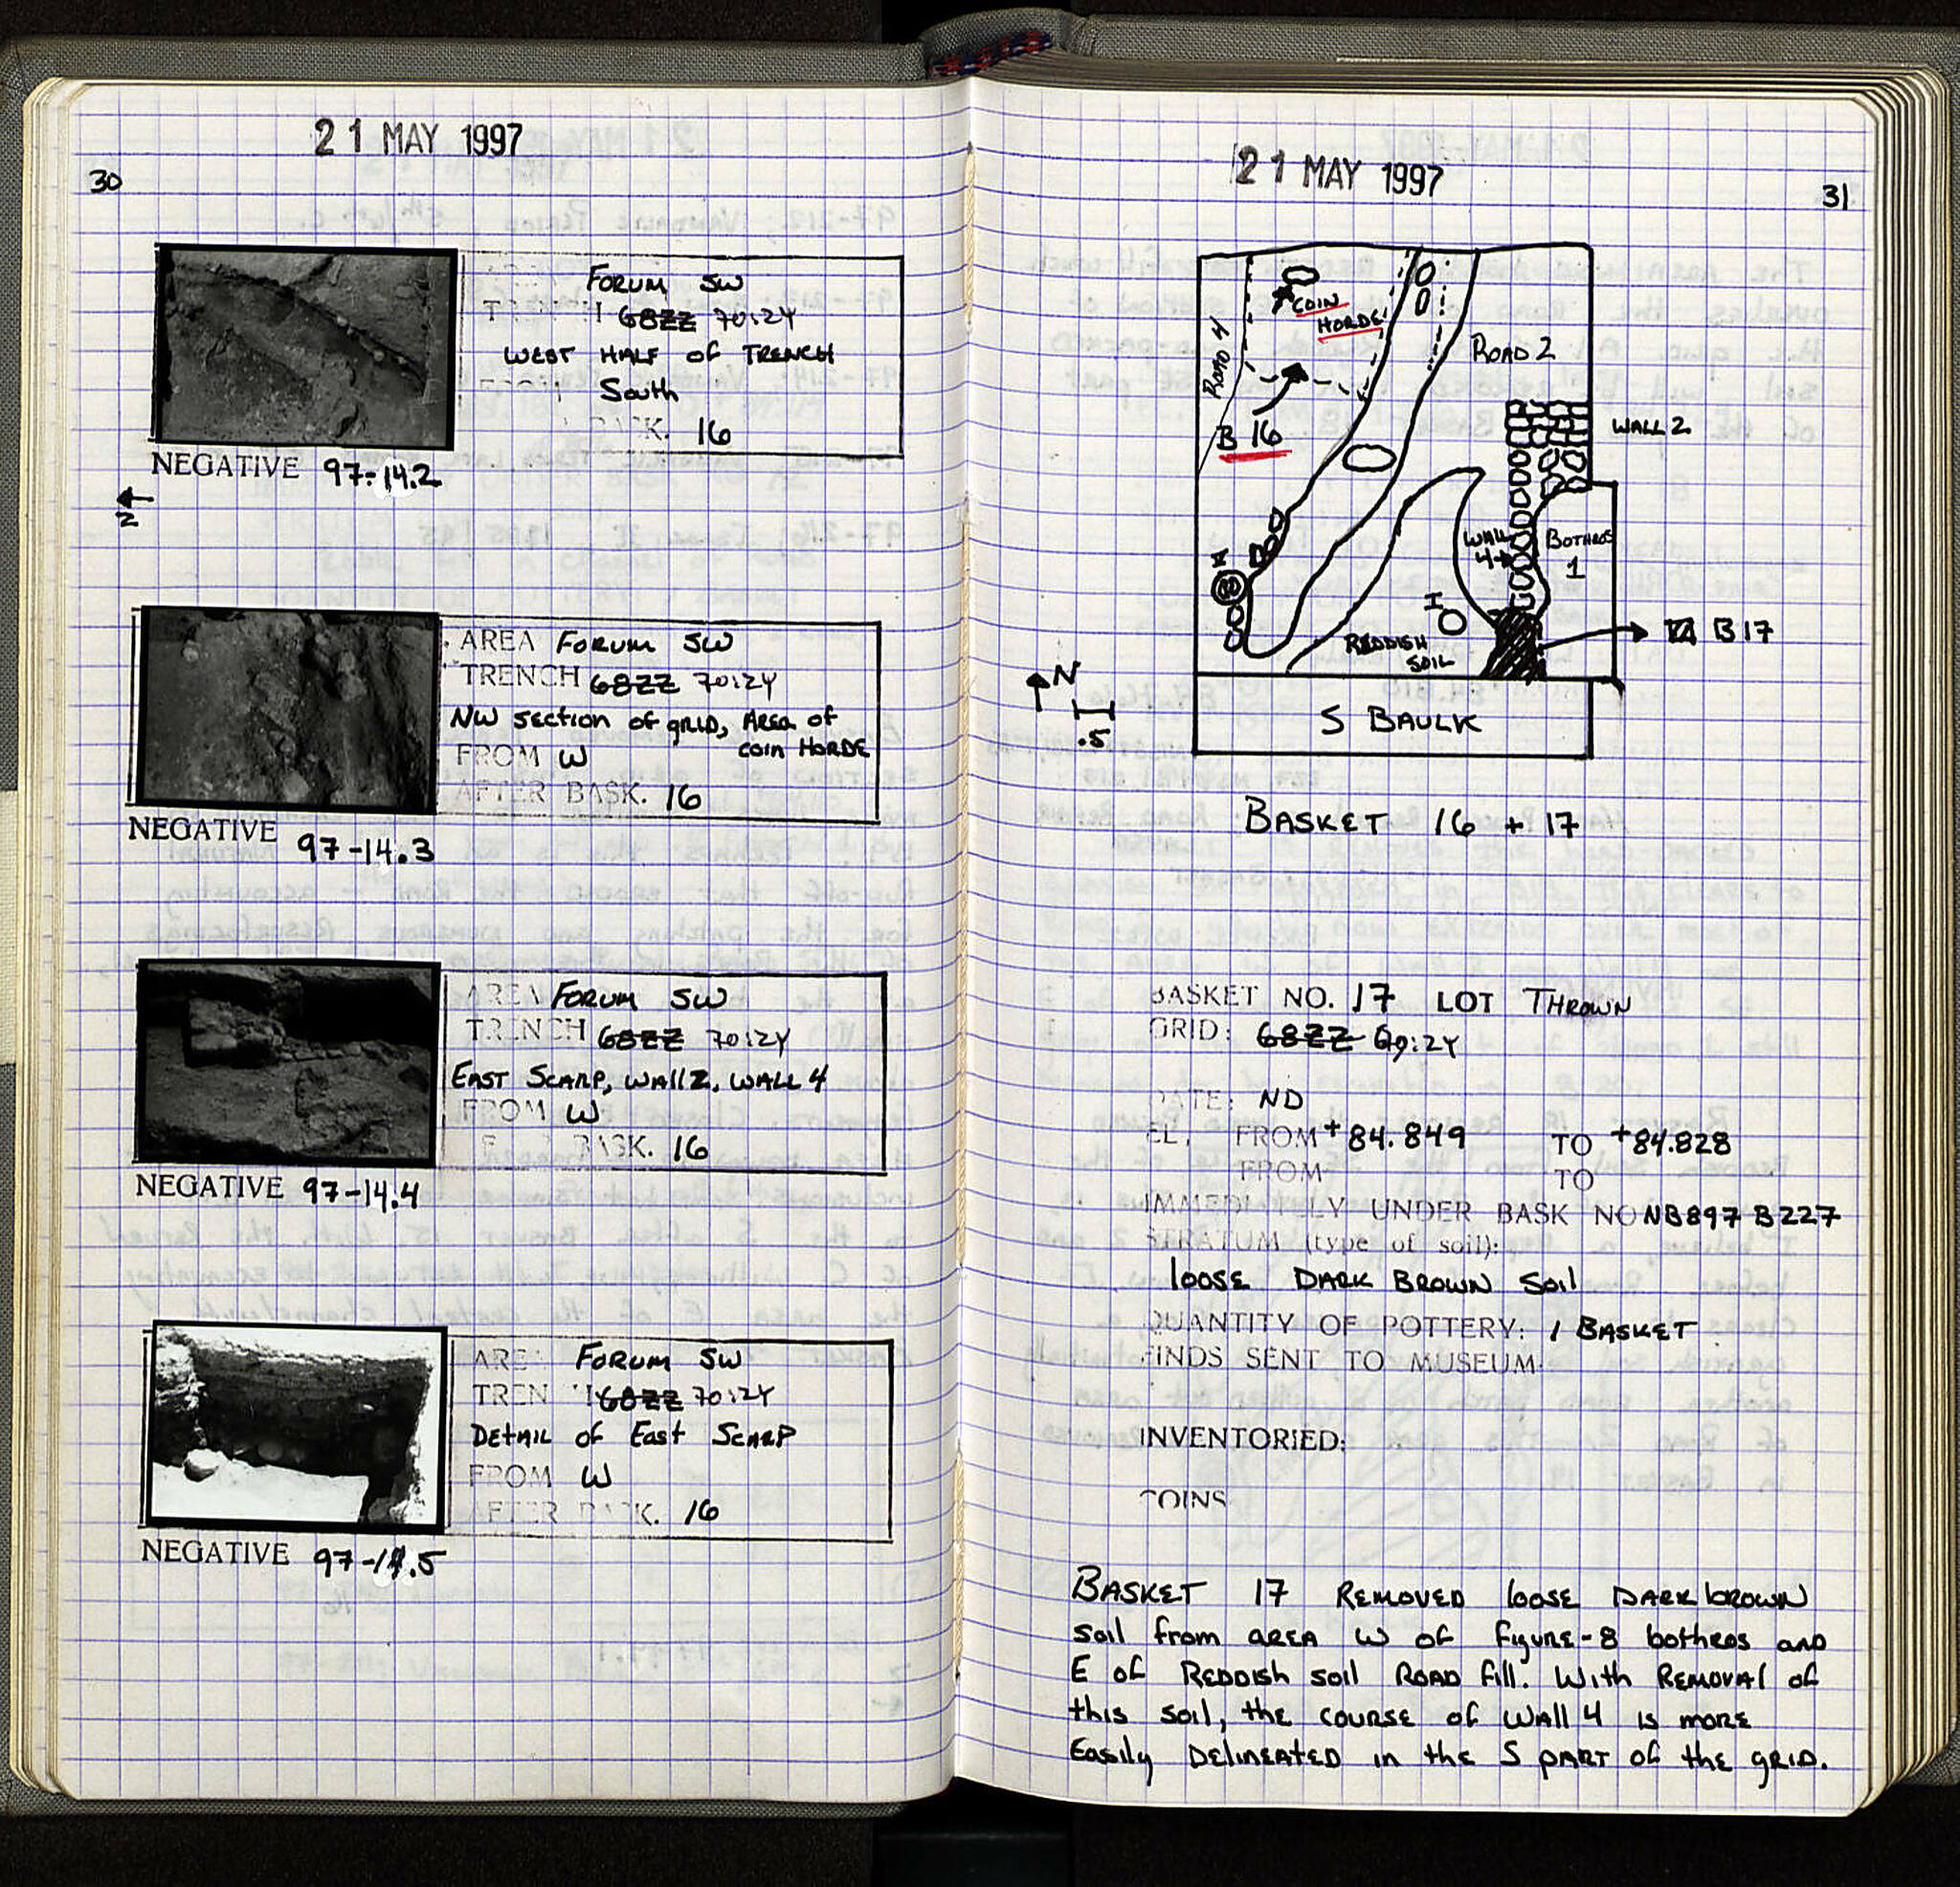 21 MAY 1997
30
FORUM SW
TRENCH 68ZZ 70:ZY
WEST HALF OF TRENCH
FROM South
BASK. 16
NEGATIVE 97-14.2
N
AREA FORUM SW
TRENCH 68ZZ 70:ZY
NW section of grid, AREA of
coin HORDE
FROM W
AFTER BASK. 16
NEGATIVE 97-14.3
AREA FORUM SW
TRENCH 68ZZ 70:ZY
EAST SCARP, WALL 2, WALL 4
FROM W
BASK. 16
NEGATIVE 97-14.4
AREA FORUM SW
TRENCH 68ZZ 70:ZY
DETAIL of East SCARP
FROM W
AFTER BASK. 16
NEGATIVE 97-14.5
21 MAY 1997
31
COIN
HORDE
ROAD 4
ROAD 2
B 16
WALL 2
WALL
4
BOTHROS
1
I
REDDISH
SOIL
B 17
N
.5
S BAULK
BASKET 16 + 17
BASKET NO. 17 LOT THROWN
GRID: 68ZZ 69:ZY
DATE: ND
EL. FROM +84.849 TO +84.828
FROM TO
IMMEDIATELY UNDER BASK NO NB897 B227
STRATUM (type of soil):
loose DARK BROWN Soil
QUANTITY OF POTTERY: 1 BASKET
FINDS SENT TO MUSEUM:
INVENTORIED:
COINS
BASKET 17 REMOVED loose DARK brown
soil from AREA W of figure-8 bothros AND
E of REDDISH soil ROAD fill. With REMOVAL of
this soil, the COURSE of WALL 4 is MORE
Easily DELINEATED in the S PART of the gRID.